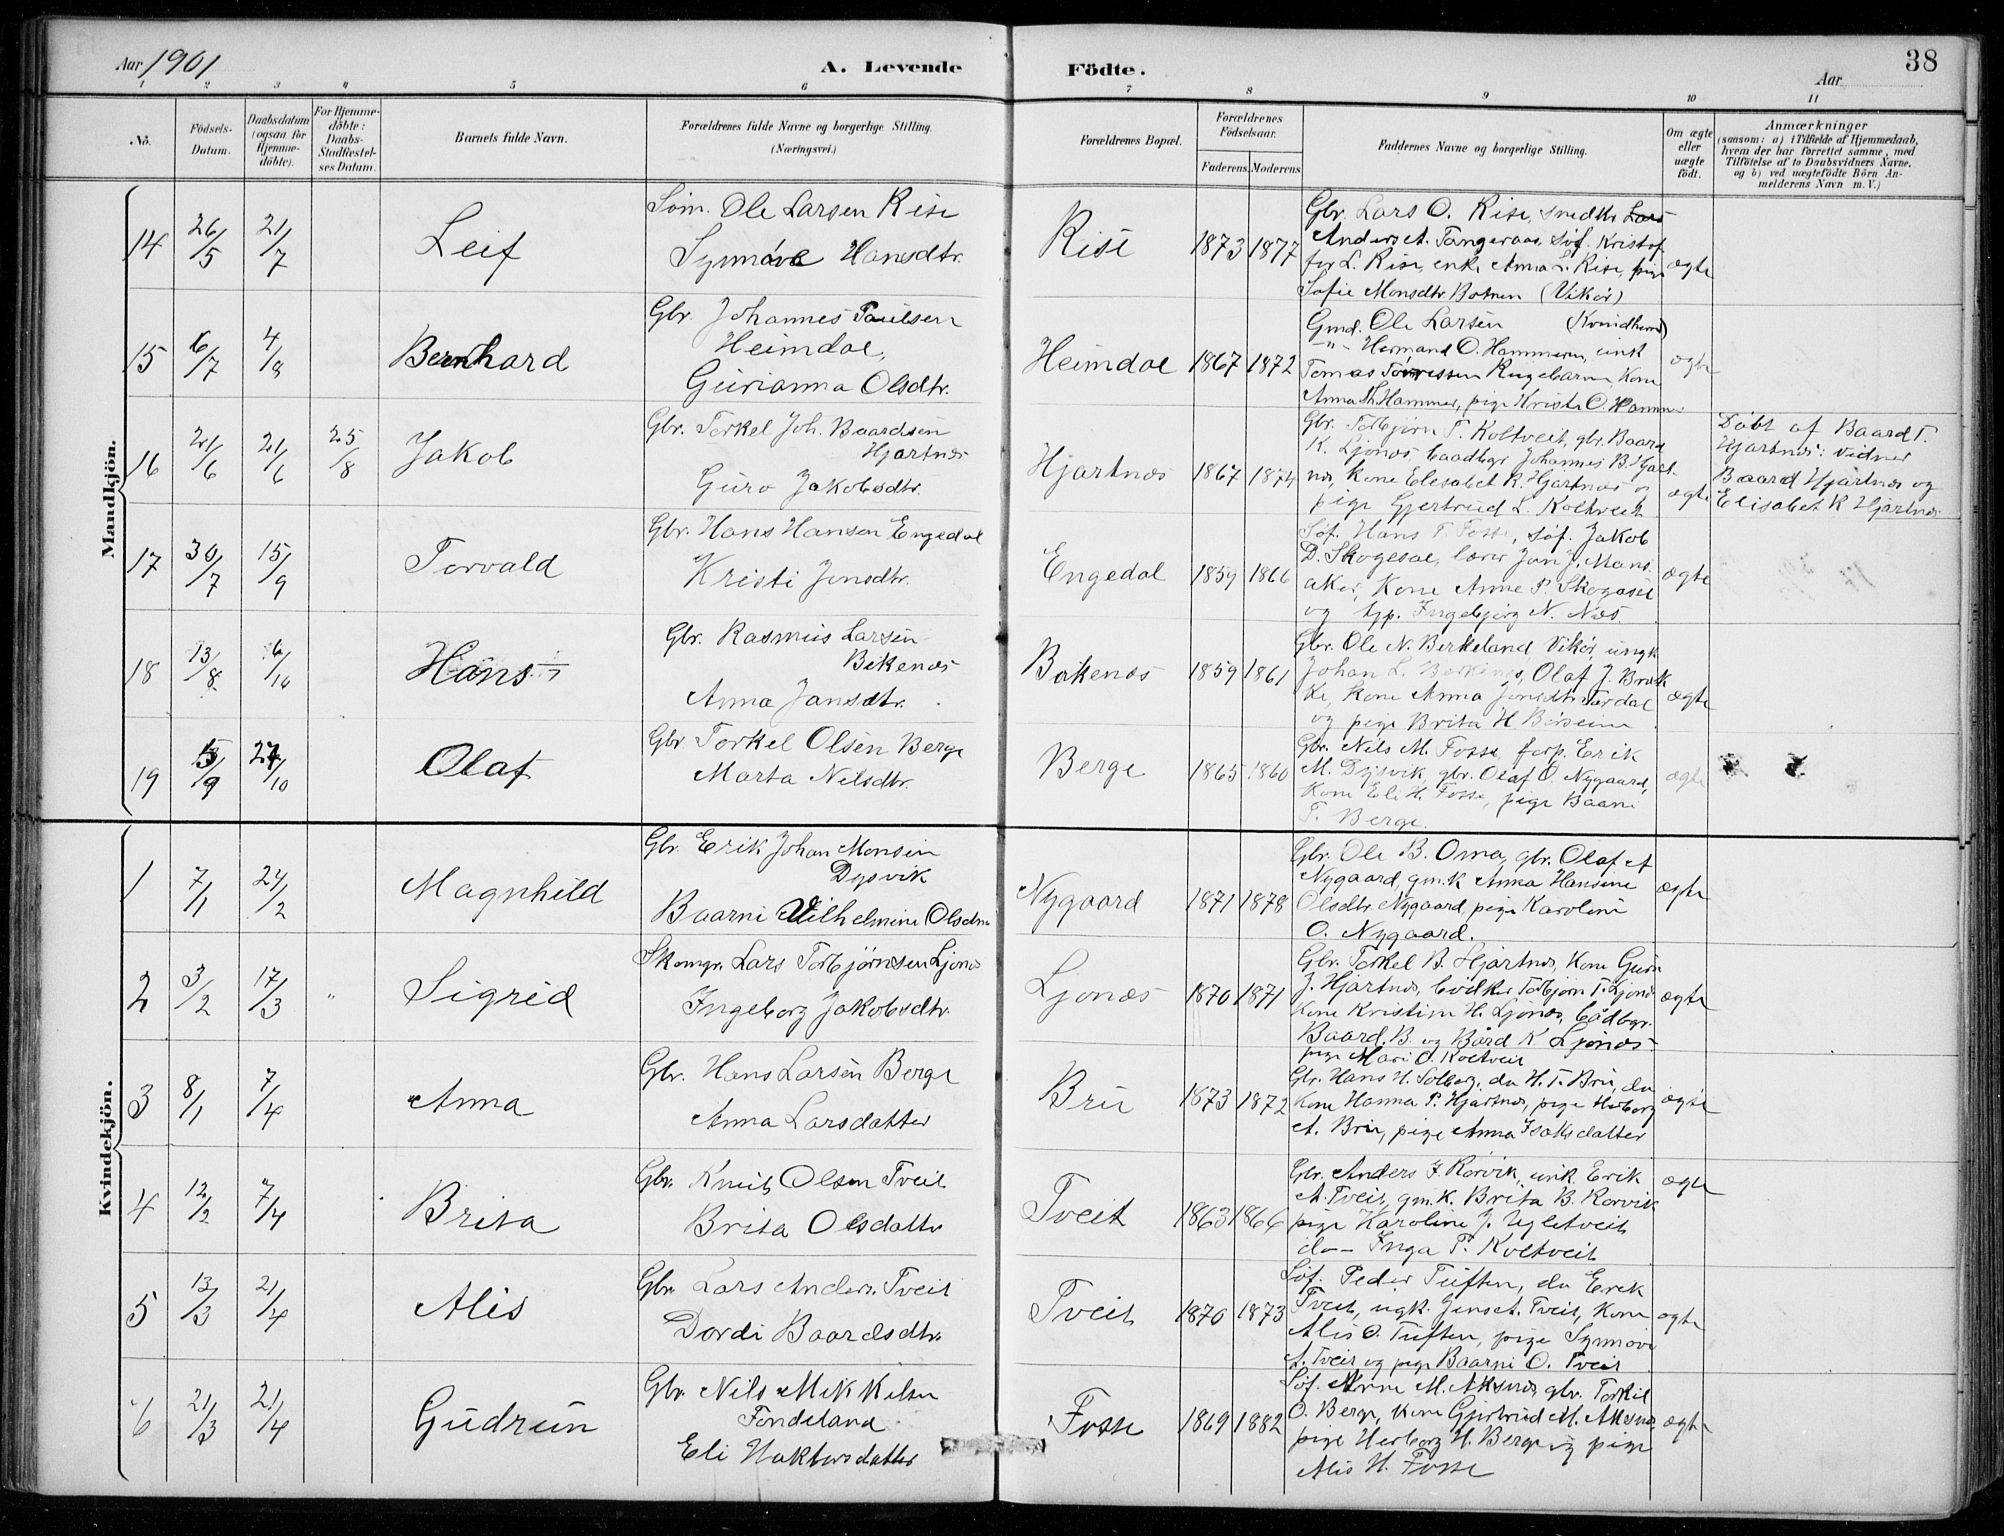 Aar 1901
A. Levende
Födte.
Aar
38
1 2 3 4 5 6 7 8 9 10 11
No.
Födsels-Datum.
Daabsdatum (ogsaa for Hjemme-döbte).
For Hjemme-döbte: Daabs-Stadfæstel-ses Datum.
Barnets fulde Navn.
Forældrenes fulde Navne og borgerlige Stilling.
(Næringsvei.)
Forældrenes Bopæl.
Forældrenes Födselsaar.
Faderens. Moderens.
Faddernes Navne og borgerlige Stilling.
Om ægte eller uægte födt.
Anmærkninger
(saasom: a) i Tilfælde af Hjemmedaab,
hvem der har forrettet samme, med
Tilföielse af to Daabsvidners Navne,
og b) ved uægtefödte Börn An-
melderens Navn m. V.)
Mandkjön.
14 26/5 21/7 Leif
Søm. Ole Larsen Rise
Synnøve Hansdtr.
Rise 1873 1877
Gbr. Lars O. Rise, snedkr Lars
Anders A. Tangeraas, søf. Kristof
fer L. Rise, enke Anna L. Rise, pige
Sofie Monsdtr Botnen (Vikør)
ægte
15 6/7 4/8 Bernhard
Gbr. Johannes Paulsen
Heimdal,
Gurianna Olsdtr.
Heimdal 1867 1872
Gmd. Ole Larsen (Kvindherred)
-"- Hermand O. Hammeren, enk
Tomas Kone
Anna Th. Hammer, pige Krista O. Hammer
ægte
16 21/6 21/6 25/8 Jakob
Gbr. Torkel Joh. Baardsen
Hjartnes
Guro Jakobsdtr.
Hjartnes 1867 1874
Gbr. Torbjørn T. Koltveit, gbr. Baard
K. Ljones, baadbgr Johannes B. Hjart-
nes, Kone Elesabet R. Hjartnes og
pige Gjertrud L. Koltveit
ægte
Døbt af Baard T.
Hjartnes: vidner
Baard Hjartnes og
Elisabet R Hjartnes
17 30/7 15/9 Torvald
Gbr. Hans Hansen Engedal
Kristi Jensdtr.
Engedal 1859 1866
Søf. Hans T. Fosse, søf. Jakob
D. Skogesal, lærer Jon J. Mans-
aker, Kone Anne P. Skogasel
og Ingebjørg N. Næs
ægte
18 13/8 6/10 Hans
Gbr. Rasmus Larsen
Bekenes
Anna Jansdtr.
Bakenes 1859 1861
Gbr. Ole N. Berkeland, Vikør, ungk
Johan L. Berkenes, Olaf J. Brek
ke, Kone Anna Jonsdtr Tørdal
og pige Brita H. Børseim
ægte
19 5/9 27/10 Olaf
Gbr Torkel Olsen Berge
Marta Nilsdtr.
Berge 1865 1860
Gbr. Nils M. Fosse, forp. Erik
M. Dysvik, gbr. Olaf O. Nygaard,
Kone Eli H. Fosse, pige Baani
T. Berge
ægte
Kvindekjön.
1 7/1 24/2 Magnhild
Gbr. Erik Johan Monsen
Dysvik
Baarni Vilhelmine Olsdtr
Nygaard 1871 1878
Gbr. Ole B. Oma, gbr. Olaf A
Nygaard, gm.k Anna Hansine
Olsdtr Nygaard, pige Karoline
O. Nygaard.
ægte
2 3/2 17/3 " Sigrid
Skomgr. Lars Torbjørnsen Ljones
Ingeborg Jakobsdtr.
Ljones 1870 1871
Gbr. Torkel B. Hjartnes, Kone Guro
J. Hjartnes, bødker Torbjørn T. Ljones
Kone Kristine H. Ljønes, bådbgr.
Baard. B. og Bård K Ljønes
pige Mari O. Koltveit
ægte
3 8/1 7/4 Anna
Gbr. Hans Larsen Berge
Anna Larsdatter
Bru 1873 1872
Gbr. Hans H. Solberg, do H. T. Bru, do
Kone Hanna P. Hjartnes, pige Herborg
A. Bru, pige Anna Isaksdatter
ægte
4 12/2 7/4 Brita
Gbr. Knut Olsen Tveit
Brita Olsdattr
Tveit 1863 1866
Gbr. Anders J. Rørvik, enk. Erik
A. Tveit, gm.k. Brita B. Rørvik
pige Karoline J. Ugletveit
do- Inga T. Koltveit
ægte
5 13/3 21/4 Alis
Gbr. Lars Anders. Tveit
Dordi Baardsdtr.
Tveit 1870 1873
Søf. Peder Tuften, do Erik
Tveit, ugk. Jens A. Tveit, Kone
Alis O. Tuften, pige Synnøve
A. Tveit og pige Baarni O. Tveit
ægte
6 21/3 21/4 Gudrun
Gbr. Nils Mikkelsen
Tondeland
Eli Haktorsdatter
Fosse 1869 1882
Søf. Arne M. Aksnes, gbr. Torkil
O. Berge, Kone Gjertrud M. Aksnes
pige Herborg H. Berge og pige
Alis H. Fosse
ægte